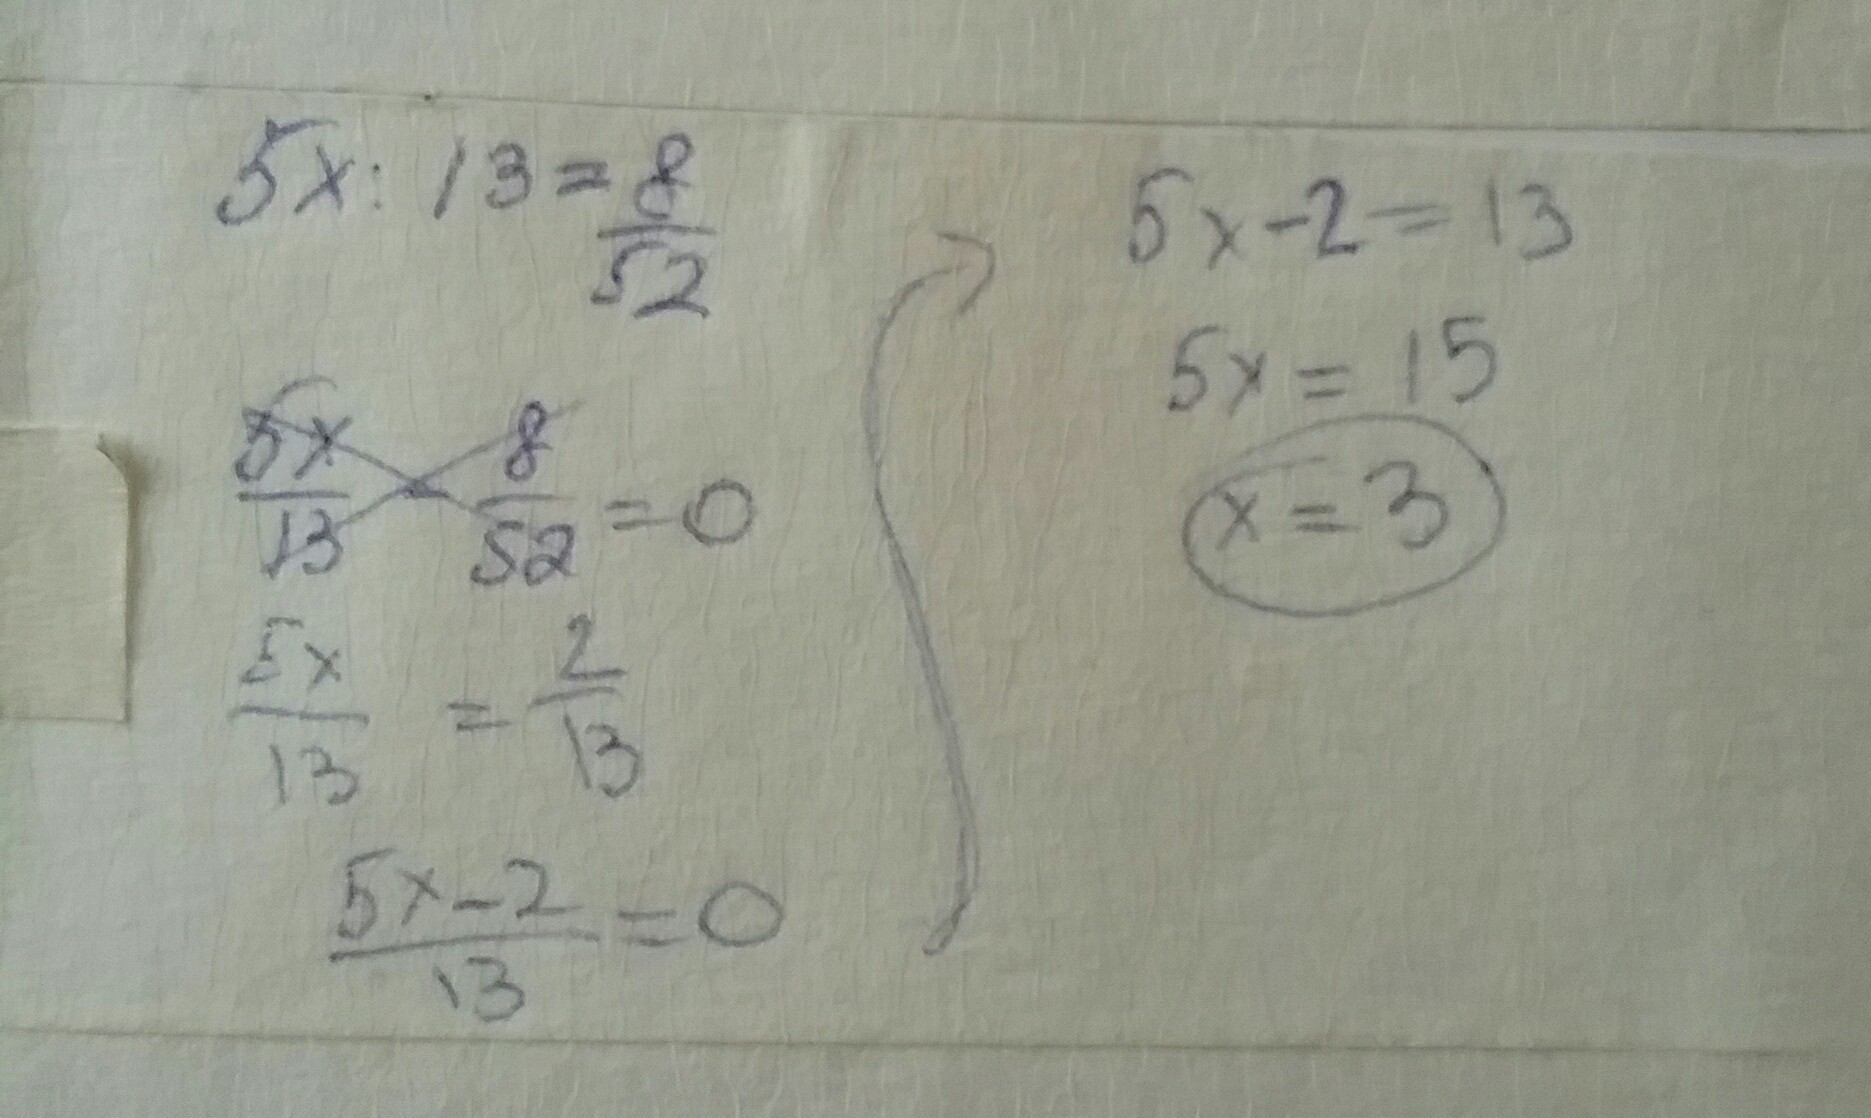 5x : 13 = 8/52
5x/13 - 8/52 = 0
5x/13 = 2/13
5x-2/13 = 0
5x-2 = 13
5x = 15
x = 3